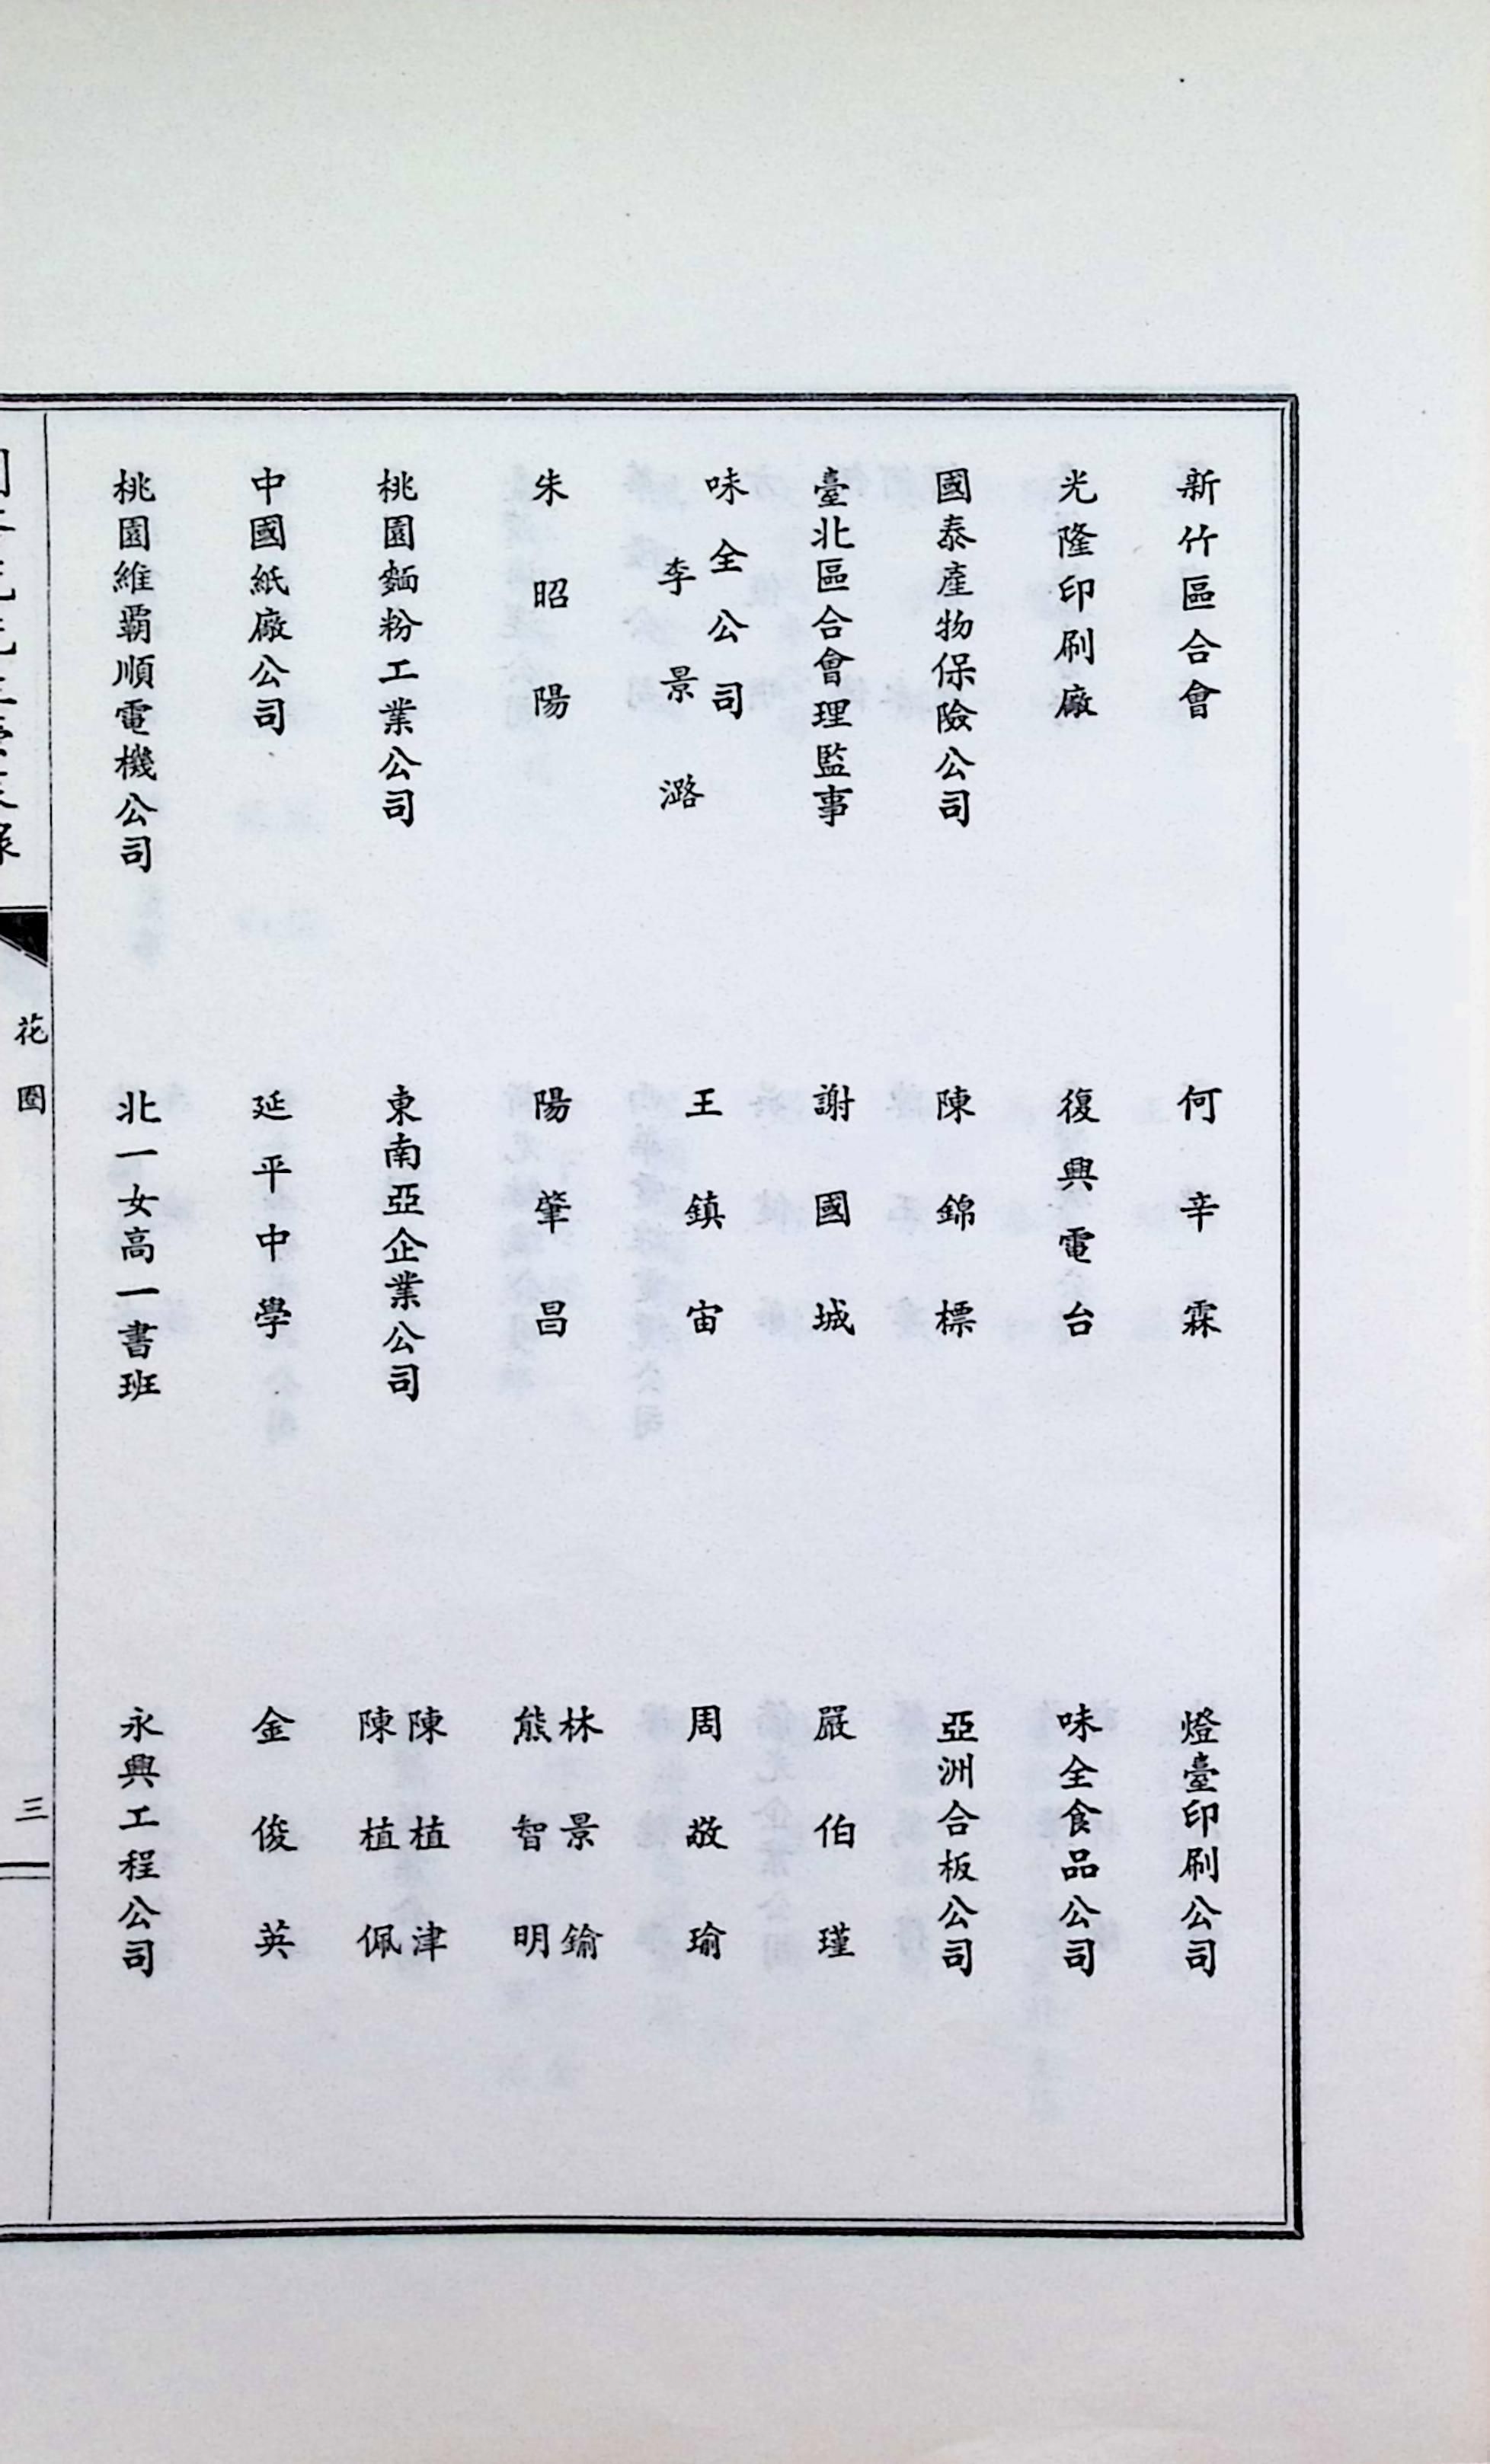 新竹區合會
何辛霖
燈臺印刷公司
光隆印刷廠
復興電台
味全食品公司
國泰產物保險公司
陳錦標
亞洲合板公司
臺北區合會理監事
謝國城
嚴伯瑾
味全公司
李景潞
王鎮宙
周敬瑜
朱昭陽
陽肇昌
林景鍮
熊智明
桃園麵粉工業公司
東南亞企業公司
陳植津
陳植佩
中國紙廠公司
延平中學
金俊英
桃園維霸順電機公司
北一女高一書班
永興工程公司
花圈
三